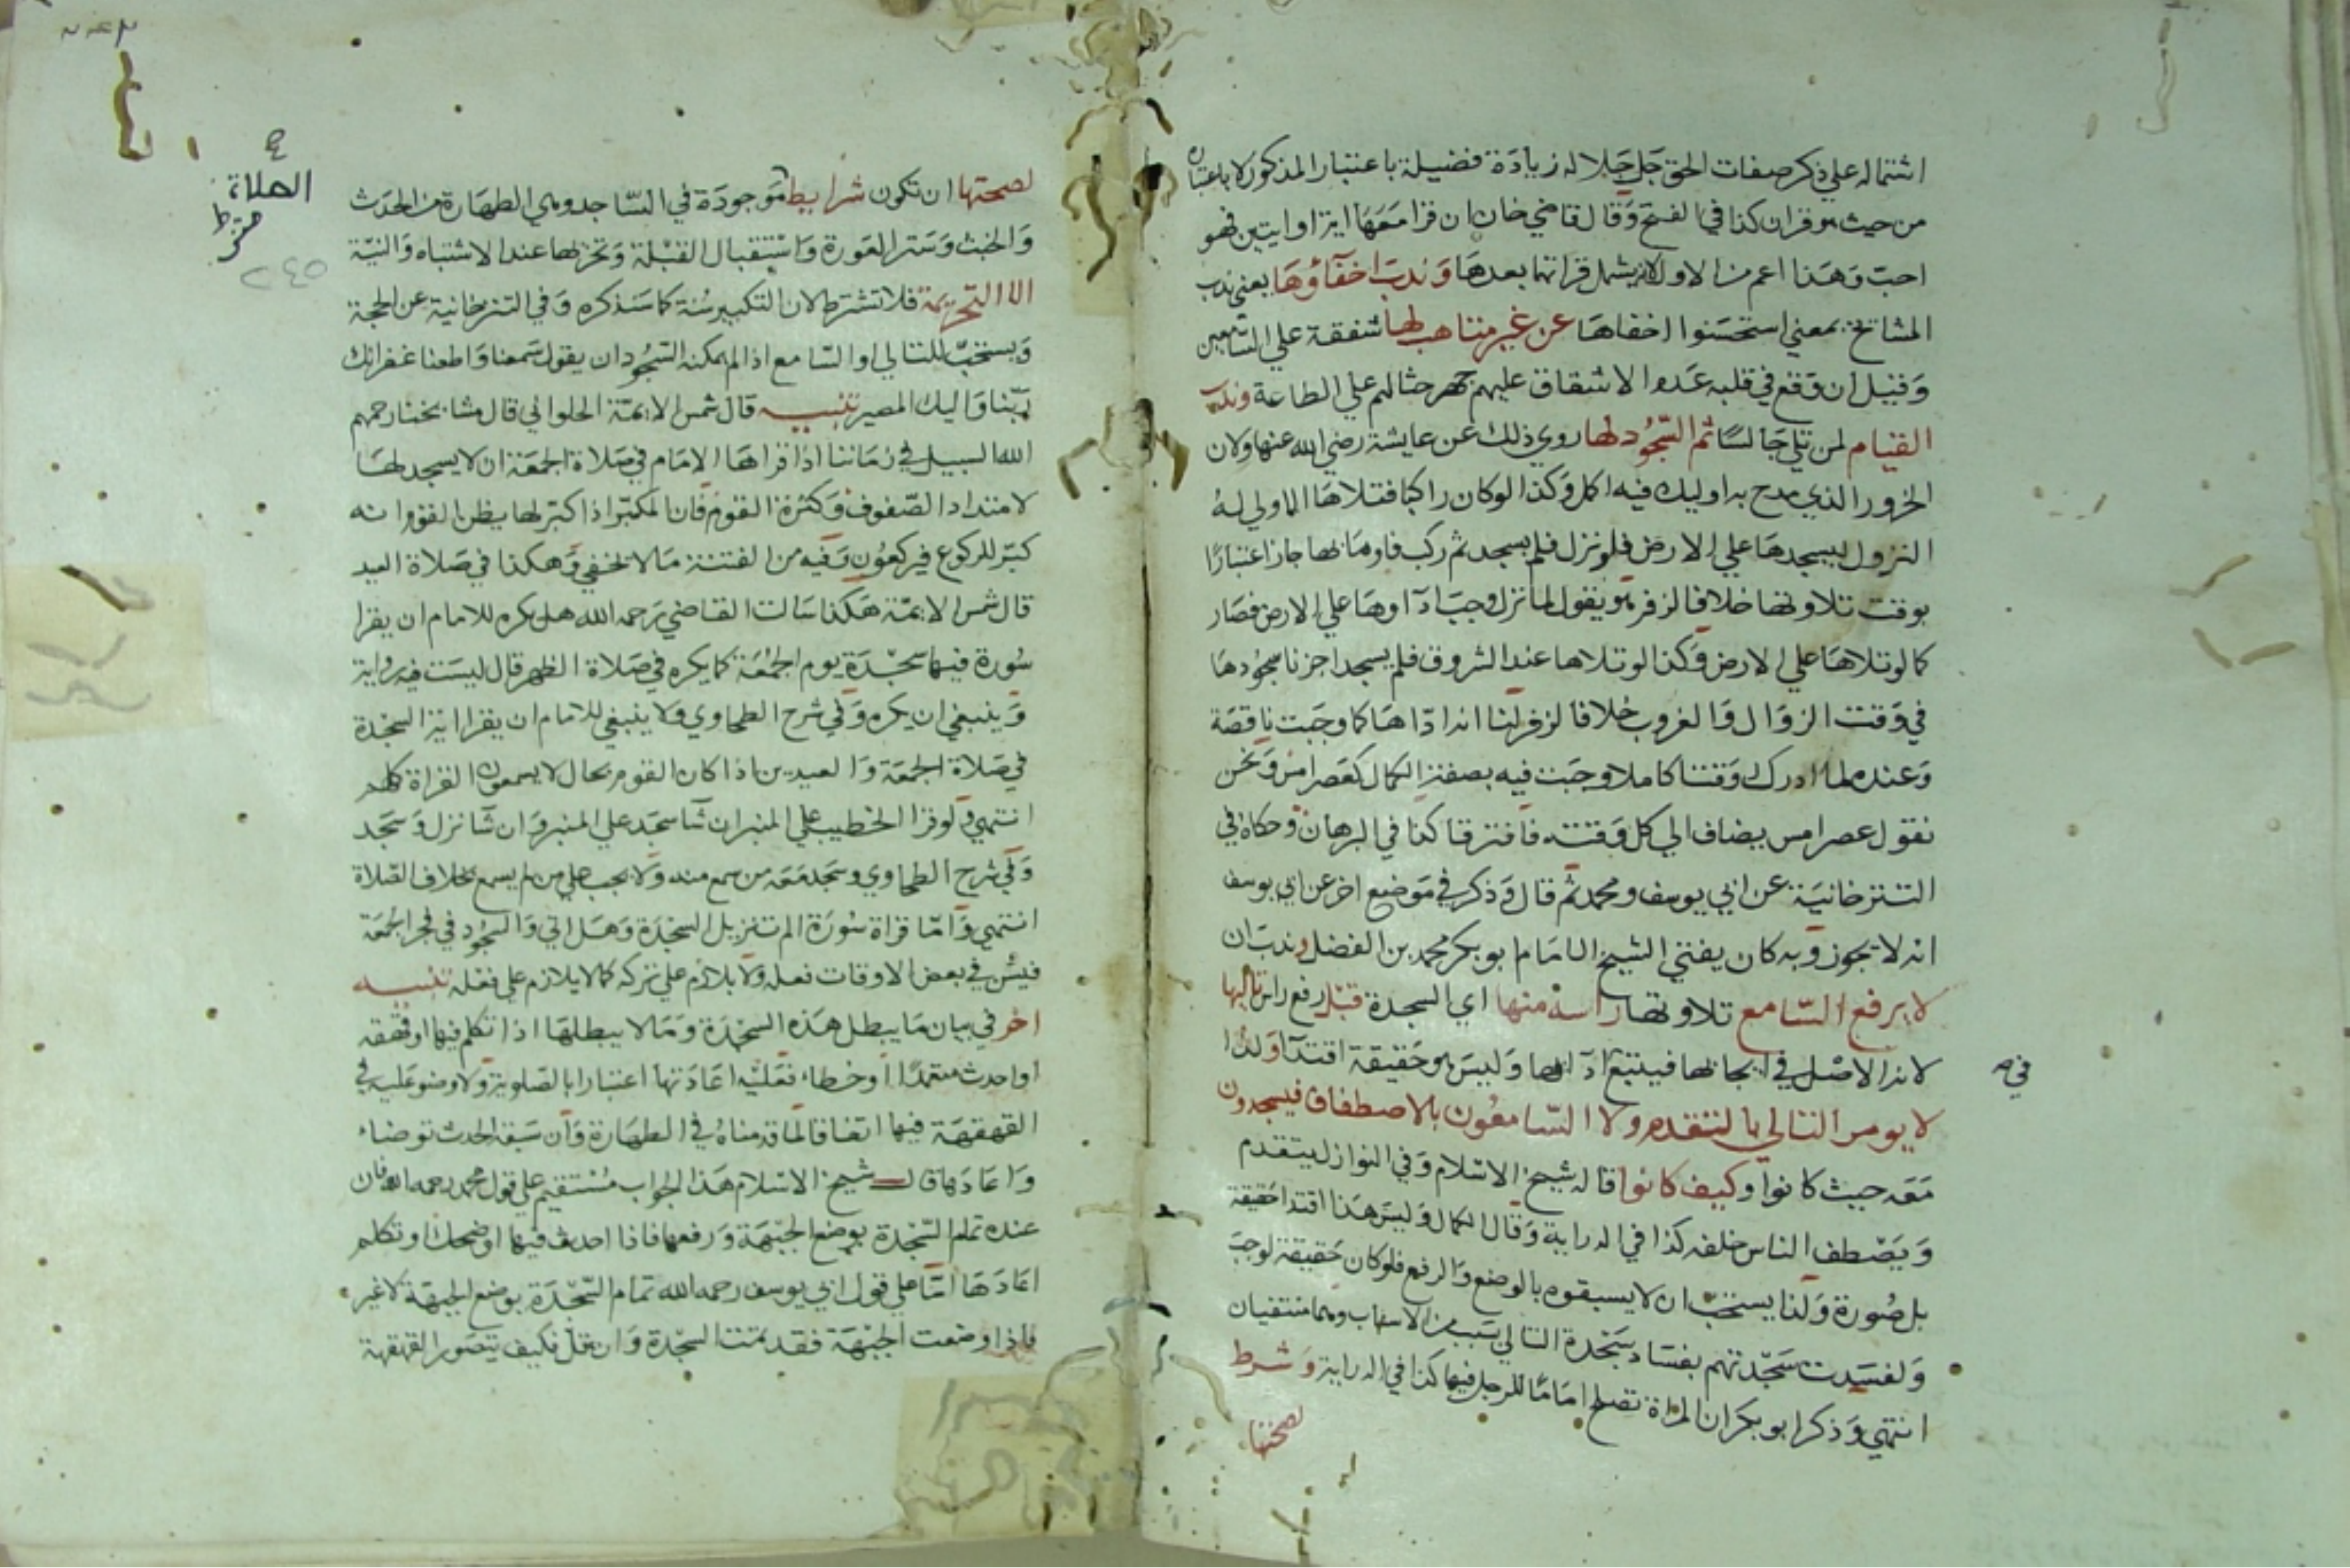 اشتماله علي ذكر صفات الحق جل جلاله زيادة فضيلة باعتبار المذكور لا باعتبار
من حيث هو قران كذا في الفتح وقال قاضي خان ان قرا معها اية او ايتين فهو
احب وهذا اعم من الاول لانه يشمل قراتها بعدها وندب اخفاؤها يعني ندب
المشائخ بمعني استحسنوا اخفاها عن غير متاهب لها شفقة علي السامعين
وقيل ان وقع في قلبه عدم الاشقاق عليهم جهر حثا لهم علي الطاعة وندب
القيام لمن تلي جالسا ثم السجود لها روي ذلك عن عايشة رضي الله عنها ولان
الخرور الذي مدح به اوليك فيه اكل وكذا لو كان راكبا فتلاها الاولي له
النزول ليسجدها علي الارض فلو نزل فلم يسجد ثم ركب فاومي لها جاز اعتبارا
بوقت تلاوتها خلافا لزفر هو يقول لما نزل وجب اداوها علي الارض فصار
كما لو تلاها علي الارض وكذا لو تلاها عند الشروق فلم يسجد اجزنا سجودها
في وقت الزوال والغروب خلافا لزفر لنا انه اداها كما وجبت ناقصة
وعنده لما ادرك وقتا كاملا وجبت فيه بصفة الكمال كعصر امس ونحن
نقول عصر امس يضاف الي كل وقته فافترقا كذا في البرهان وحكاه في
التترخانية عن ابي يوسف ومحمد ثم قال وذكر في موضع اخر عن ابي يوسف
انه لا تجوز وبه كان يفتي الشيخ الامام ابو بكر محمد بن الفضل وندب ان
لا يرفع السامع تلاوتها راسه منها اي السجدة قبل رفع راس تاليها
لانه الاصل في ايجابها فيتبع في ادائها وليس هو حقيقة اقتدا ولذا
في صح
لا يومر التالي بالتقدم ولا السامعون بالاصطفاف فيسجدون
معه حيث كانوا وكيف كانوا قاله شيخ الاسلام وفي النوازل يتقدم
ويصطف الناس خلفه كذا في الدراية وقال الكمال وليس هذا اقتدا حقيقة
بل صورة ولذا يستحب ان لا يسبقوه بالوضع والرفع فلو كان حقيقة لوجب
ولفسدت سجدتهم بفساد سجدة التالي بسبب من الاسباب وهما منتفيان
انتهي وذكر ابو بكر ان المراة تصلح اماما للرجل فيها كذا في الدراية وشرط
لصحتها
الصلاة
٢٤٥
لصحتها ان تكون شرايط موجودة في الساجد وهي الطهارة من الحدث
والخبث وستر العورة واستقبال القبلة وتحريها عند الاشتباه والنية
الا التحريمة فلا تشترط لان التكبير سنة كما سنذكره وفي التترخانية عن الحجة
ويستحب للتالي او السامع اذا لم يمكنه السجود ان يقول سمعنا واطعنا غفرانك
ربنا واليك المصير تنبيه قال شمس الايمة الحلواني قال مشايخنا رحمهم
الله السبيل في زماننا اذا قراها الامام في صلاة الجمعة ان لا يسجد لها
لامتداد الصفوف وكثرة القوم فان المكبر اذا كبر لها يظن القوم انه
كبر للركوع فيركعون وفيه من الفتنة مالا يخفي وهكذا في صلاة العيد
قال شمس الايمة هكذا سالت القاضي رحمه الله هل يكره للامام ان يقرا
سورة فيها سجدة يوم الجمعة كما يكره في صلاة الظهر قال ليست فيه رواية
وينبغي ان يكره وفي شرح الطحاوي ولا ينبغي للامام ان يقرا اية السجدة
في صلاة الجمعة والعيدين اذا كان القوم بحال لا يسمعون القراة كلهم
انتهي ولو قرا الخطيب علي المنبر ان شا سجد علي المنبر وان شا نزل وسجد
وفي شرح الطحاوي وسجد معه من سمع منه ولا يجب علي من لم يسمع بخلاف الصلاة
انتهي واما قراة سورة الم تنزيل السجدة وهل اتي والسجود في فجر الجمعة
فيسن في بعض الاوقات فعله ولا يلازم علي تركه كما لا يلازم علي فعله تنبيه
اخر في بيان ما يبطل هذه السجدة وما لا يبطلها اذا تكلم فيها او قهقه
او احدث متعمدا او خطاء فعليه اعادتها اعتبارا بالصلوية ولا وضوء عليه في
القهقهة فيها اتفاقا لما قدمناه في الطهارة وان سبقه الحدث توضاء
واعادها قال شيخ الاسلام هذا الجواب مستقيم علي قول محمد رحمه الله فان
عنده تمام السجدة بوضع الجبهة ورفعها فاذا احدث فيها او ضحك او تكلم
اعادها اما علي قول ابي يوسف رحمه الله تمام السجدة بوضع الجبهة لا غير
فاذا وضعت الجبهة فقد تمت السجدة وان قل فكيف يتصور القهقهة